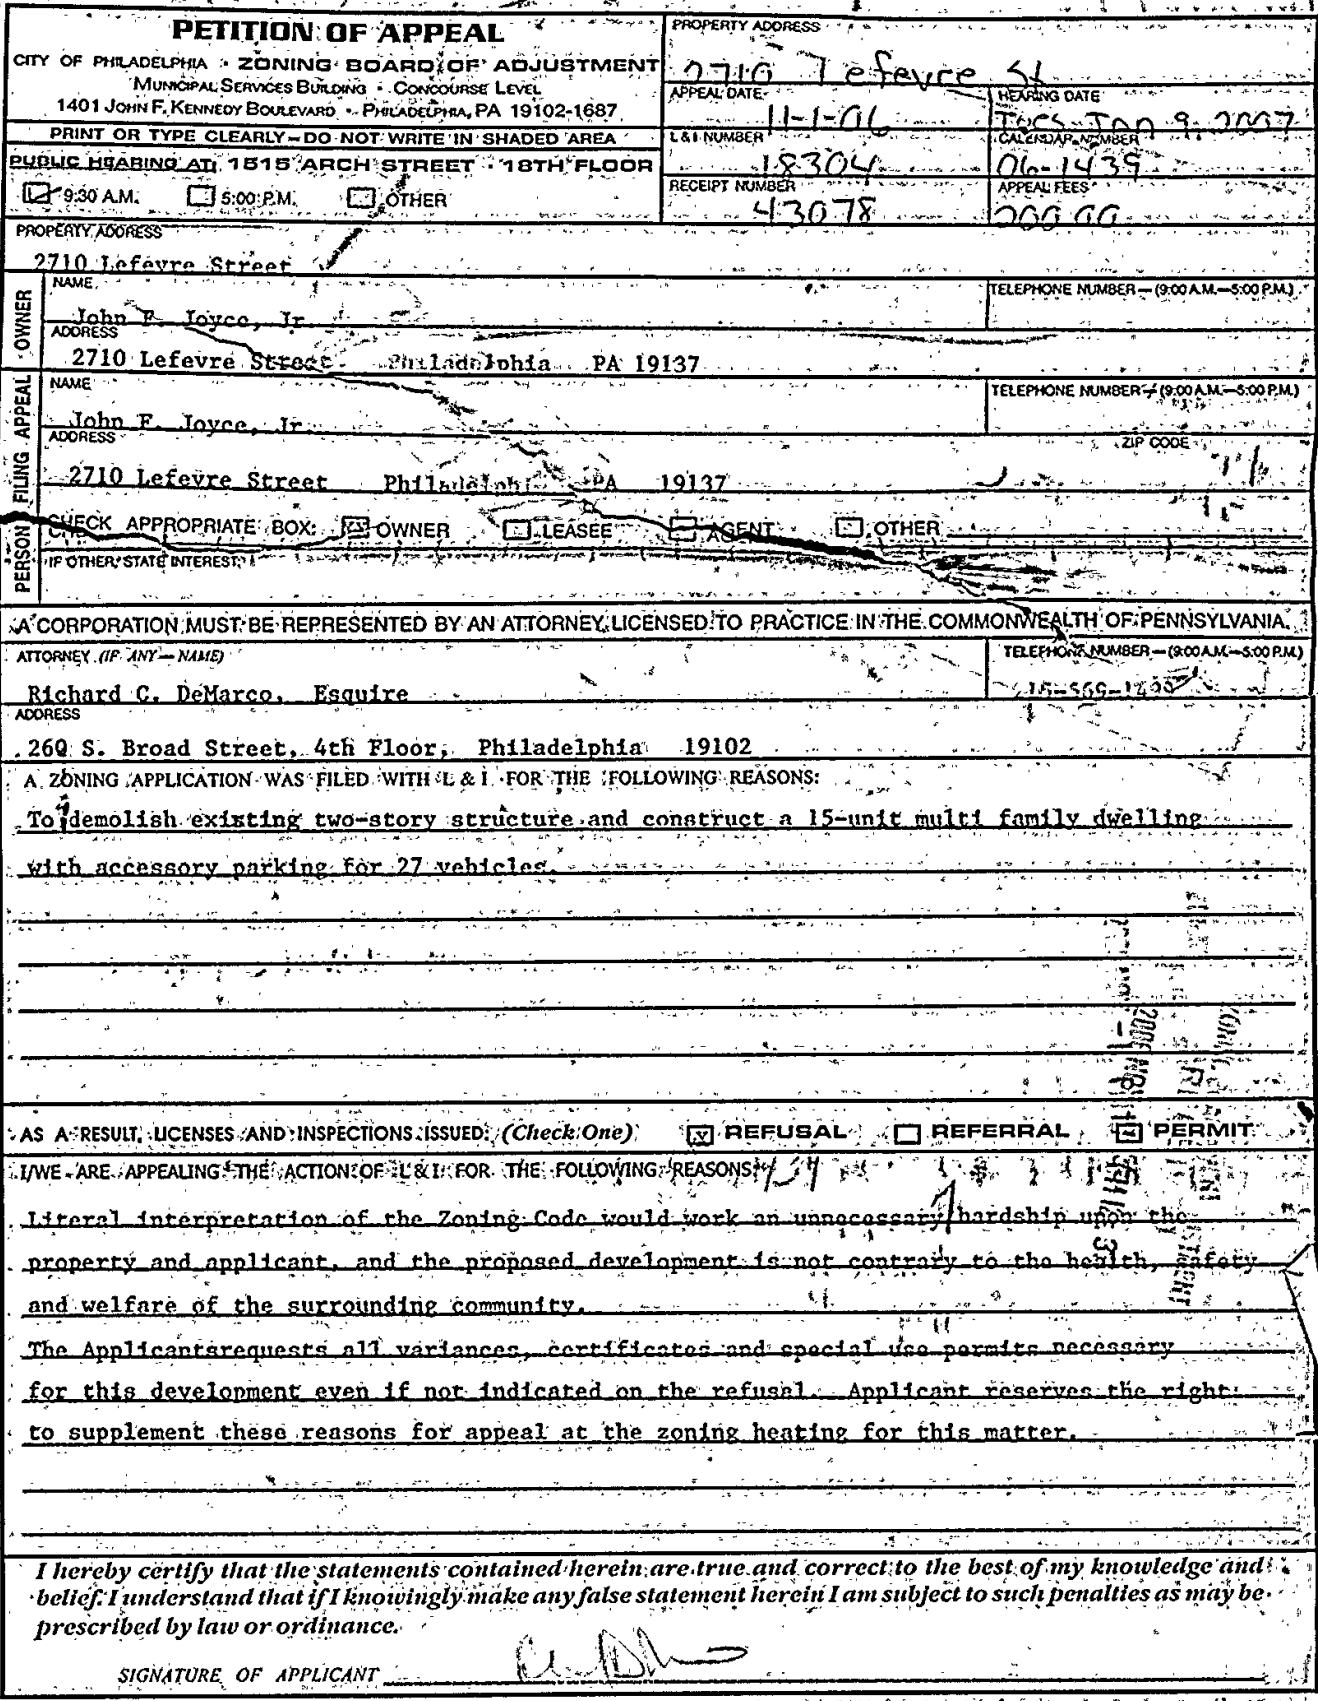 PETITION OF APPEAL
CITY OF PHILADELPHIA • ZONING BOARD OF ADJUSTMENT
MUNICIPAL SERVICES BUILDING • CONCOURSE LEVEL
1401 JOHN F. KENNEDY BOULEVARD • PHILADELPHIA, PA 19102-1687
PRINT OR TYPE CLEARLY—DO NOT WRITE IN SHADED AREA
PUBLIC HEARING AT: 1515 ARCH STREET • 18TH FLOOR
9:30 A.M. 5:00 P.M. OTHER
PROPERTY ADDRESS
2710 Lefevre St
APPEAL DATE HEARING DATE
11-1-06 Tues Jan 9, 2007
L & I NUMBER CALENDAR NUMBER
18304 06-1439
RECEIPT NUMBER APPEAL FEES
43078 200.00
PROPERTY ADDRESS
2710 Lefevre Street
OWNER
NAME TELEPHONE NUMBER—(9:00 A.M.—5:00 P.M.)
John F. Joyce, Jr.
ADDRESS
2710 Lefevre Street Philadelphia PA 19137
PERSON FILING APPEAL
NAME TELEPHONE NUMBER—(9:00 A.M.—5:00 P.M.)
John F. Joyce, Jr.
ADDRESS ZIP CODE
2710 Lefevre Street Philadelphia PA 19137
CHECK APPROPRIATE BOX: OWNER LEASEE AGENT OTHER
IF OTHER, STATE INTEREST
A CORPORATION MUST BE REPRESENTED BY AN ATTORNEY, LICENSED TO PRACTICE IN THE COMMONWEALTH OF PENNSYLVANIA.
ATTORNEY (IF ANY—NAME) TELEPHONE NUMBER—(9:00 A.M.—5:00 P.M.)
Richard C. DeMarco, Esquire
ADDRESS
260 S. Broad Street, 4th Floor, Philadelphia 19102
A ZONING APPLICATION WAS FILED WITH L & I FOR THE FOLLOWING REASONS:
To demolish existing two-story structure and construct a 15-unit multi family dwelling
with accessory parking for 27 vehicles.
AS A RESULT, LICENSES AND INSPECTIONS ISSUED: (Check One) REFUSAL REFERRAL PERMIT
I/WE ARE APPEALING THE ACTION OF L & I FOR THE FOLLOWING REASONS:
Literal interpretation of the Zoning Code would work an unnecessary hardship upon the
property and applicant, and the proposed development is not contrary to the health, safety
and welfare of the surrounding community.
The Applicantsrequests all variances, certificates and special use permits necessary
for this development even if not indicated on the refusal. Applicant reserves the right
to supplement these reasons for appeal at the zoning heating for this matter.
I hereby certify that the statements contained herein are true and correct to the best of my knowledge and
belief. I understand that if I knowingly make any false statement herein I am subject to such penalties as may be
prescribed by law or ordinance.
SIGNATURE OF APPLICANT